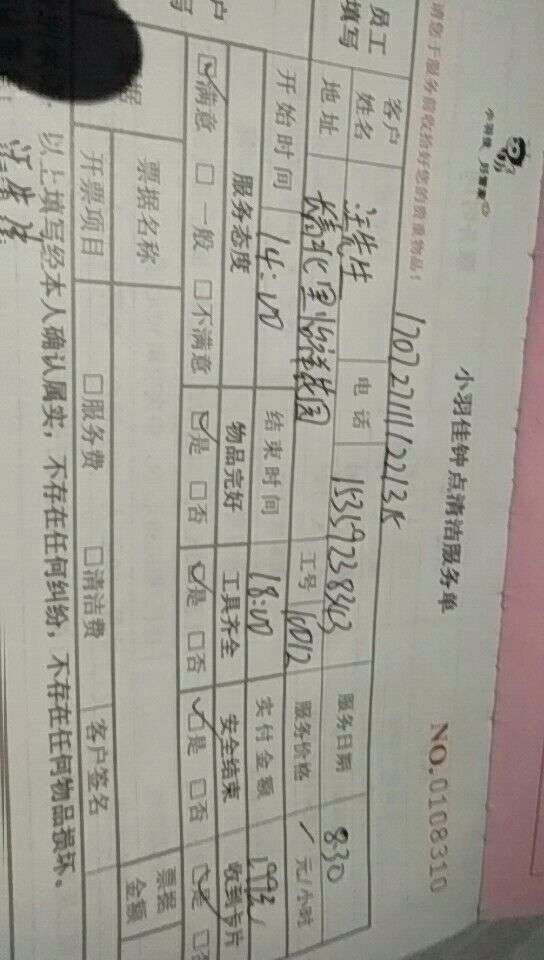 小羽佳 好管家
小羽佳钟点清洁服务单
NO.0108310
请您于服务前收拾好您的贵重物品！
1707271111221315
员工填写
客户姓名 汪先生 电话 15359238343 服务日期 8.30
地址 工号 60012 服务价格 / 元/小时
开始时间 14:00 结束时间 18:00 实付金额
服务态度 物品完好 工具齐全 安全结束 收到卡片
☑满意 □一般 □不满意 ☑是 □否 ☑是 □否 ☑是 □否 ☑是
票据名称 票据金额
开票项目 □服务费 □清洁费 客户签名
以上填写经本人确认属实，不存在任何纠纷，不存在任何物品损坏。